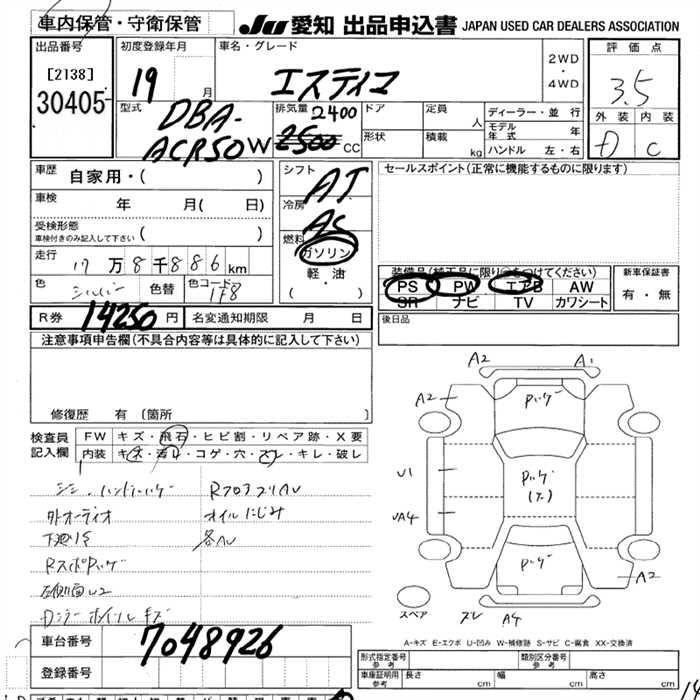 車内保管・守衛保管
JU 愛知 出品申込書 JAPAN USED CAR DEALERS ASSOCIATION
出品番号
[2138]
30405
初度登録年月
19 月
車名・グレード
エスティマ
2WD
・
4WD
評価点
3.5
外装 内装
D C
型式
DBA-
ACR50W
排気量 2400
2500 CC
ドア
形状
定員 人
積載 kg
ディーラー・並行
モデル年式 年
ハンドル 左・右
車歴 自家用・( )
車検 年 月( 日)
受検形態
車検付きのみ記入して下さい ( )
走行 17万8千886km
色 シルバー 色替 色コード 1F8
シフト AT
冷房 AC
燃料
ガソリン
軽・油
( ・ )
セールスポイント(正常に機能するものに限ります)
装備品(純正品に限り○をつけてください)
PS PW エアB AW
SR ナビ TV カワシート
新車保証書
有・無
R券 14250円 名変通知期限 月 日
後日品
注意事項申告欄(不具合内容等は具体的に記入して下さい)
修復歴 有 〔箇所
検査員
記入欄
FW キズ・飛石・ヒビ割・リペア跡・X要
内装 キズ・汚レ・コゲ・穴・スレ・キレ・破レ
外オーディオ
オイルにじみ
各AU
A2 A1
A2
U1
UA4
A2
スペア
スレ A4
A-キズ E-エクボ U-凹み W-補修跡 S-サビ C-腐食 XX-交換済
車台番号 7048926
登録番号
形式指定番号
参考
類別区分番号
参考
車庫証明用
参考
長さ cm
幅 cm
高さ cm